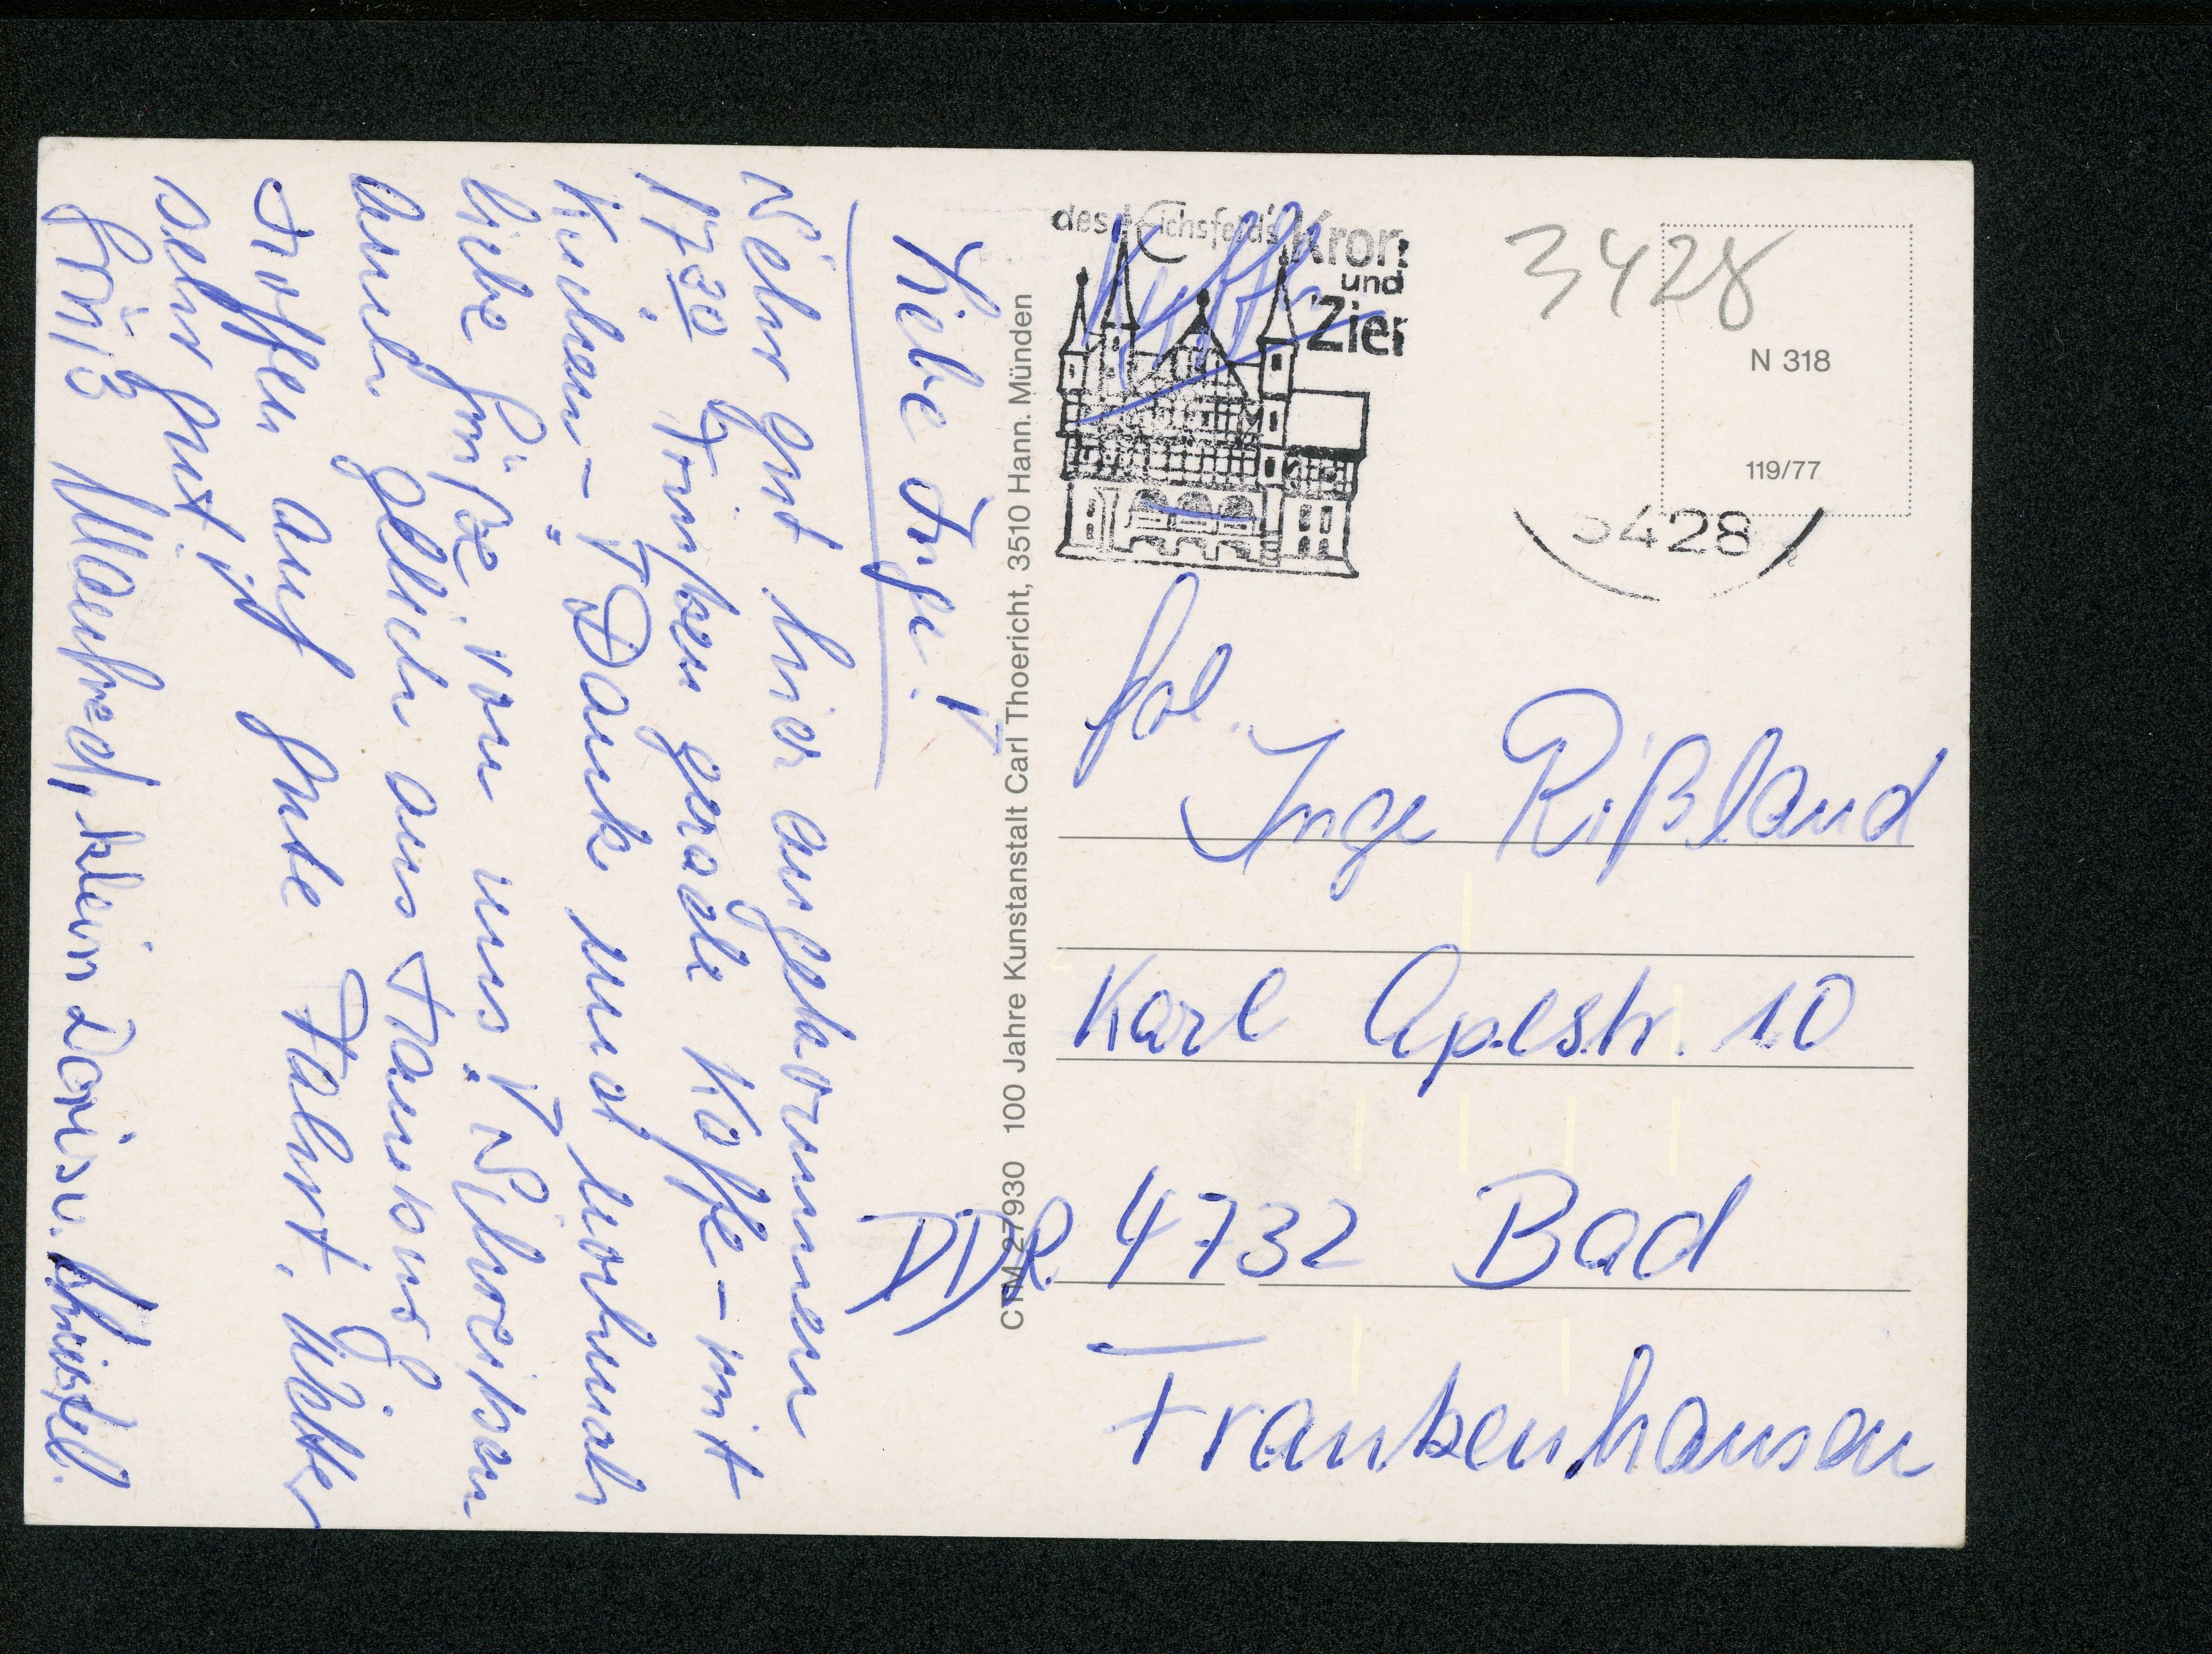 Liebe Inge!
Sehr gut hier angekommen
17.30 Trinken gerade Kaffe – mit
Kuchen – ! Dank und nochmals
liebe Grüße von uns! Schreiben
auch gleich ans
Hoffen auf gute Fahrt. Wetter
sehr gut ist
Gruß Manfred, klein Doris u. Christel.
CTM 27930 100 Jahre Kunstanstalt Carl Thoericht, 3510 Hann. Münden
des Eichsfeld's Kron
und
Zier
3428
N 318
119/77
3428
Inge Rißland
Karl Apelstr. 10
DDR 4732 Bad
Frankenhausen